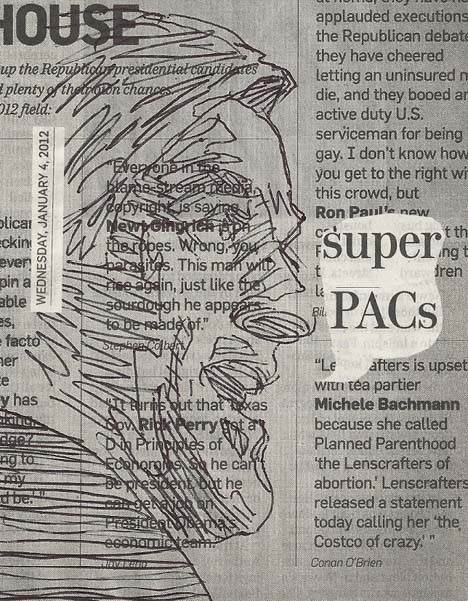 HOUSE
up the Republican presidential candidates
plenty of their own chances.
012 field:
WEDNESDAY, JANUARY 4, 2012
"Everyone in the
blame-stream media,
copyright, is saying
Newt Gingrich is on
the ropes. Wrong, you
parasites. This man will
rise again, just like the
sourdough he appears
to be made of."
Stephen Colbert
"It turns out that Texas
Gov. Rick Perry got a
D in Principles of
Economics. So he can't
be president, but he
can get a job on
President Obama's
economic team."
Jay Leno
applauded executions
the Republican debate
they have cheered
letting an uninsured
die, and they booed an
active duty U.S.
serviceman for being
gay. I don't know how
you get to the right
this crowd, but
Ron Paul's new
super
PACs
is upset
with tea partier
Michele Bachmann
because she called
Planned Parenthood
'the Lenscrafters of
abortion.' Lenscrafters
released a statement
today calling her 'the
Costco of crazy.' "
Conan O'Brien